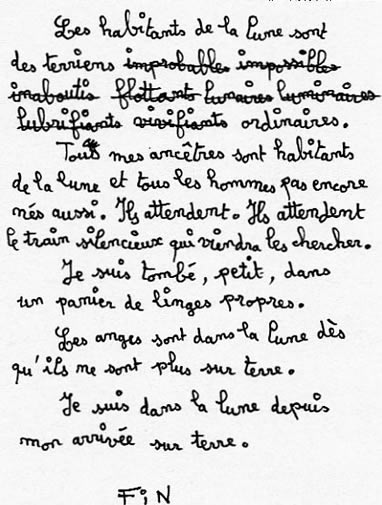 Les habitants de la lune sont
des terriens improbables impossibles
inaboutis flottants lunaires luminaires
lubrifiants vivifiants ordinaires.
Tous mes ancêtres sont habitants
de la lune et tous les hommes pas encore
nés aussi. Ils attendent. Ils attendent
le train silencieux qui viendra les chercher.
Je suis tombé, petit, dans
un panier de linges propres.
Les anges sont dans la lune dès
qu'ils ne sont plus sur terre.
Je suis dans la lune depuis
mon arrivée sur terre.
FiN